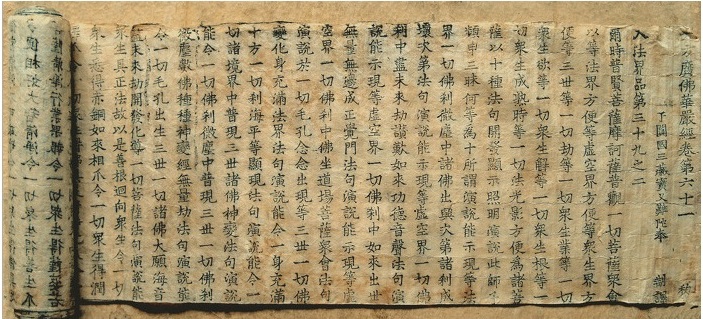 廣佛華嚴經卷第六十一
于闐國三藏實叉難陀奉 制譯
入法界品第三十九之二
爾時普賢菩薩摩訶薩普觀一切菩薩眾會
以等法界方便等虛空界方便等眾生界方
便等三世等一切劫等一切眾生業等一切
眾生欲等一切眾生解等一切眾生根等一
切眾生成熟時等一切法光影方便為諸菩
薩以十種法句開發顯示照明演說此師子
頻申三昧何等為十所謂演說能示現等法
界一切佛剎微塵中諸佛出興次第諸剎成
壞次第法句演說能示現等虛空界一切佛
剎中盡未來劫讚歎如來功德音聲法句演
說能示現等虛空界一切佛剎中如來出世
無量無邊成正覺門法句演說能示現等虛
空界一切佛剎中佛坐道場菩薩眾會法句
演說於一切毛孔念念出現等三世一切佛
變化身充滿法界法句演說能令一身充滿
十方一切剎海平等顯現法句演說能令一
切諸境界中普現三世諸佛神變法句演說
能令一切佛剎微塵中普現三世一切佛剎
微塵數佛種種神變經無量劫法句演說能
令一切毛孔出生三世一切諸佛大願海音
盡未來劫開發化導一切菩薩法句演說能
眾生具正法故以是善根迴向眾生令一切
眾生悉得赤銅如來相爪令一切眾生得潤